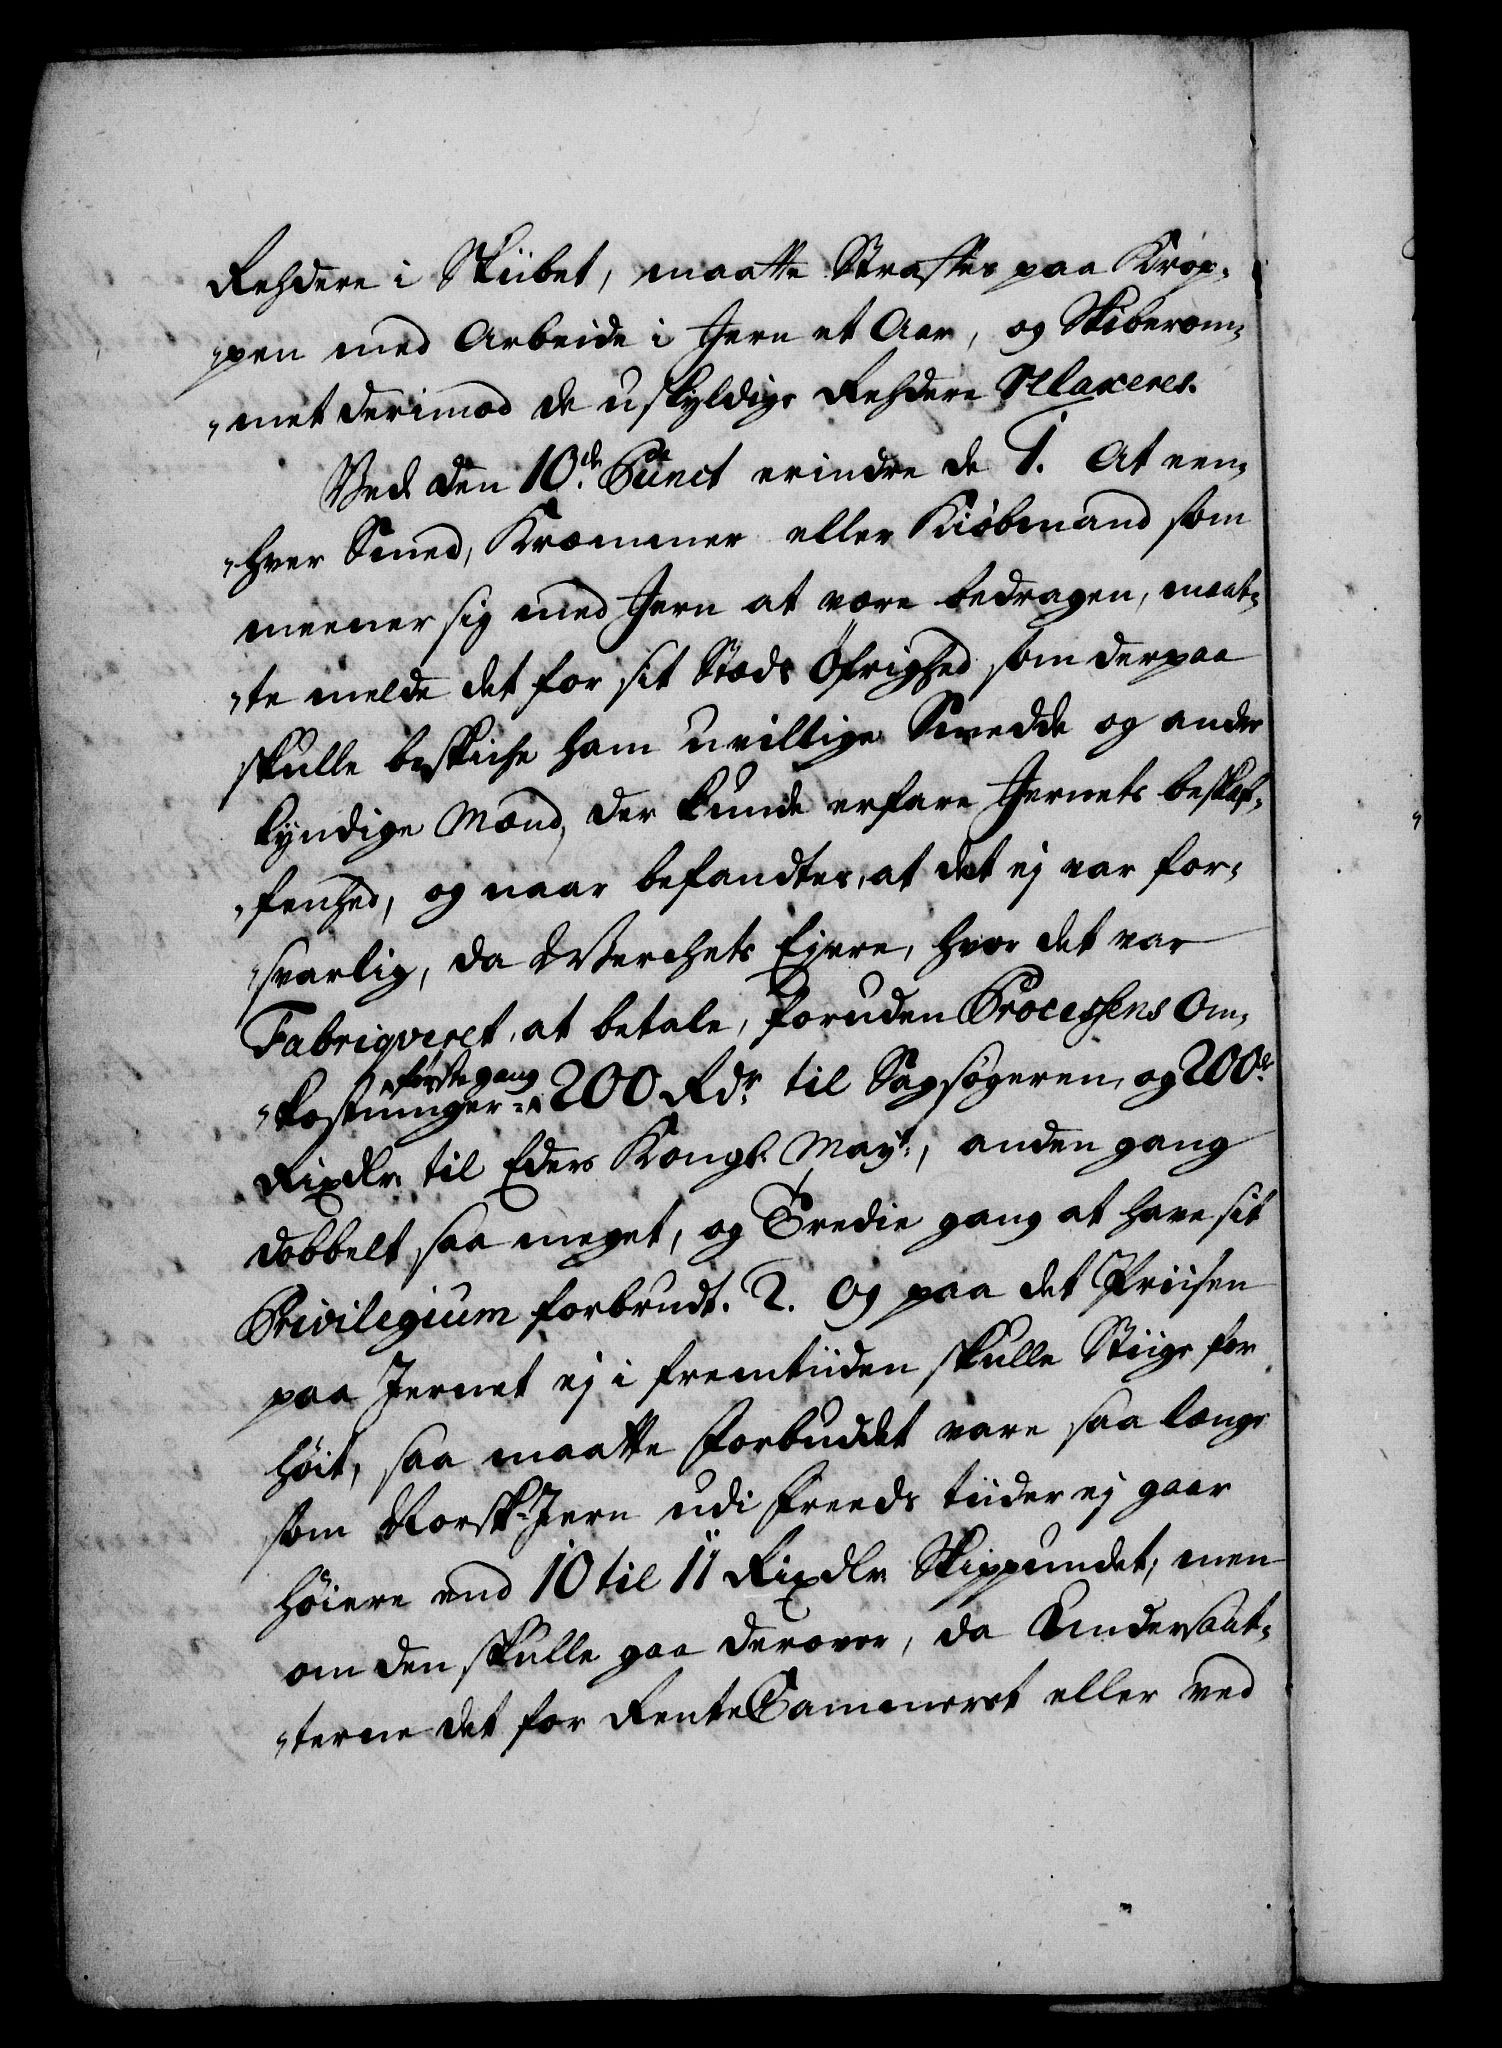 Rehdere i Skiibet, maatte Straffes paa Krop¬
„pen med Arbeide i Jern et Aar, og Skiberom¬
„met derimod de uskyldige Rehdere
Ved den 10de Punct erindre de 1. At een¬
„hver Smed, Kræmmer eller Kiøbmand som
meener sig med Jern at være bedragen, maat¬
„te melde det for sit Stæds Øfrighed som derpaa
skulle beskiche ham uvillige Smedde og andre
kyndige Mænd, der kunde erfare Jernets beskaf¬
„fenhed, og naar befandtes, at det ej var for¬
„svarlig, da Werchets Ejere, hvor det var
Fabriqveret, at betale, foruden Processens Om¬
„kostninger første gang 200 Rdr til Sagsøgeren, og 200de
Rixdlr til Eders Kongl. Mayt:, anden gang
dobbelt saa meget, og Tredie gang at have sit
Privilegium forbrudt. 2. Og paa det Priisen
paa Jernet ej i fremtiiden skulle Stiige for
høit, saa maatte Forbuddet vare saa længe
som Norsk Jern udi Freeds tiider ej gaar
høiere end 10 til 11 Rixdlr Skippundet, men
om den skulle gaa derover, da Undersaat¬
„terne det for RenteCammeret eller ved